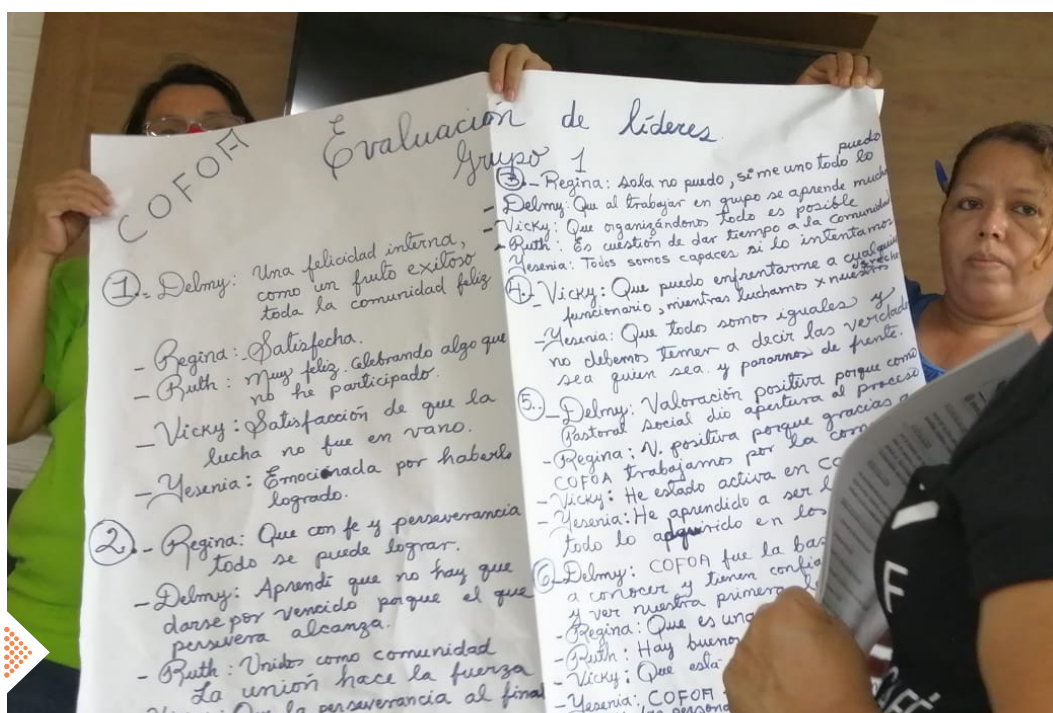 COFOA
Evaluación de líderes.
Grupo 1
①.- Delmy: Una felicidad interna,
como un fruto exitoso
toda la comunidad feliz
- Regina: Satisfecha.
- Ruth: Muy feliz. Celebrando algo que
no he participado.
- Vicky: Satisfacción de que la
lucha no fue en vano.
- Yesenia: Emocionada por haberlo
logrado.
②.- Regina: Que con fe y perseverancia
todo se puede lograr.
- Delmy: Aprendí que no hay que
darse por vencido porque el que
persevera alcanza.
- Ruth: Unidos como comunidad
La unión hace la fuerza
Que la perseverancia al final
puedo
③.- Regina: sola no puedo, si me uno todo lo
- Delmy: Que al trabajar en grupo se aprende mucho
- Vicky: Que organizándonos todo es posible
- Ruth: Es cuestión de dar tiempo a la comunidad
Yesenia: Todos somos capaces si lo intentamos
④.- Vicky: Que puedo enfrentarme a cualquier
funcionario, mientras luchamos x nuestros
- Yesenia: Que todos somos iguales y
no debemos temer a decir las verdades
sea quien sea. y pararnos de frente.
⑤.- Delmy: Valoración positiva porque como
Pastoral Social dio apertura al proceso
- Regina: V. positiva porque gracias a
COFOA trabajamos por la com
- Vicky: He estado activa en CO
- Yesenia: He aprendido a ser l
todo lo adquirido en los
⑥.- Delmy: COFOA fue la bas
a conocer y tienen confia
y ver nuestra primera
- Regina: Que es una
- Ruth: Hay buenos
- Vicky: Que esta
- Yesenia: COFOA